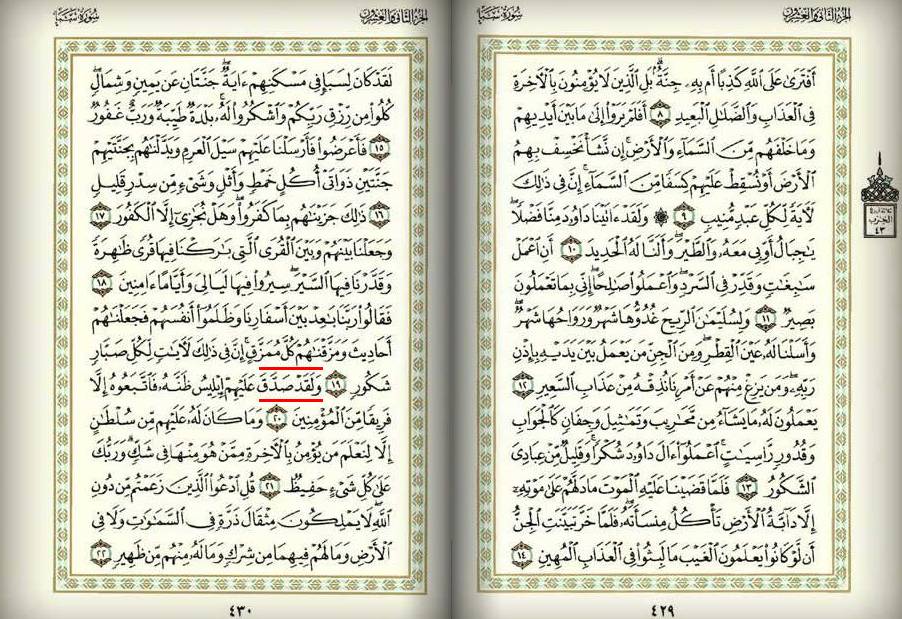 الجُزْءُ الثَّانِي وَالعِشْرُونَ سُورَةُ سَبَإٍ
أَفْتَرَىٰ عَلَى ٱللَّهِ كَذِبًا أَم بِهِۦ جِنَّةُۢۗ بَلِ ٱلَّذِينَ لَا يُؤْمِنُونَ بِٱلْأٓخِرَةِ
فِى ٱلْعَذَابِ وَٱلضَّلَٰلِ ٱلْبَعِيدِ ٨ أَفَلَمْ يَرَوْا۟ إِلَىٰ مَا بَيْنَ أَيْدِيهِمْ
وَمَا خَلْفَهُم مِّنَ ٱلسَّمَآءِ وَٱلْأَرْضِۚ إِن نَّشَأْ نَخْسِفْ بِهِمُ
ٱلْأَرْضَ أَوْ نُسْقِطْ عَلَيْهِمْ كِسَفًا مِّنَ ٱلسَّمَآءِۚ إِنَّ فِى ذَٰلِكَ
لَأٓيَةً لِّكُلِّ عَبْدٍ مُّنِيبٍ ٩ ۞ وَلَقَدْ ءَاتَيْنَا دَاوُۥدَ مِنَّا فَضْلًاۖ
يَٰجِبَالُ أَوِّبِى مَعَهُۥ وَٱلطَّيْرَۖ وَأَلَنَّا لَهُ ٱلْحَدِيدَ ١٠ أَنِ ٱعْمَلْ
سَٰبِغَٰتٍ وَقَدِّرْ فِى ٱلسَّرْدِۖ وَٱعْمَلُوا۟ صَٰلِحًاۖ إِنِّى بِمَا تَعْمَلُونَ
بَصِيرٌ ١١ وَلِسُلَيْمَٰنَ ٱلرِّيحَ غُدُوُّهَا شَهْرٌ وَرَوَاحُهَا شَهْرٌۖ
وَأَسَلْنَا لَهُۥ عَيْنَ ٱلْقِطْرِۖ وَمِنَ ٱلْجِنِّ مَن يَعْمَلُ بَيْنَ يَدَيْهِ بِإِذْنِ
رَبِّهِۦۖ وَمَن يَزِغْ مِنْهُمْ عَنْ أَمْرِنَا نُذِقْهُ مِنْ عَذَابِ ٱلسَّعِيرِ ١٢
يَعْمَلُونَ لَهُۥ مَا يَشَآءُ مِن مَّحَٰرِيبَ وَتَمَٰثِيلَ وَجِفَانٍ كَٱلْجَوَابِ
وَقُدُورٍ رَّاسِيَٰتٍۚ ٱعْمَلُوٓا۟ ءَالَ دَاوُۥدَ شُكْرًاۚ وَقَلِيلٌ مِّنْ عِبَادِىَ
ٱلشَّكُورُ ١٣ فَلَمَّا قَضَيْنَا عَلَيْهِ ٱلْمَوْتَ مَا دَلَّهُمْ عَلَىٰ مَوْتِهِۦٓ
إِلَّا دَآبَّةُ ٱلْأَرْضِ تَأْكُلُ مِنسَأَتَهُۥۖ فَلَمَّا خَرَّ تَبَيَّنَتِ ٱلْجِنُّ
أَن لَّوْ كَانُوا۟ يَعْلَمُونَ ٱلْغَيْبَ مَا لَبِثُوا۟ فِى ٱلْعَذَابِ ٱلْمُهِينِ ١٤
٤٢٩
ثلاثة أرباع
الحزب
٤٣
الجُزْءُ الثَّانِي وَالعِشْرُونَ سُورَةُ سَبَإٍ
لَقَدْ كَانَ لِسَبَإٍ فِى مَسْكَنِهِمْ ءَايَةٌۖ جَنَّتَانِ عَن يَمِينٍ وَشِمَالٍۖ
كُلُوا۟ مِن رِّزْقِ رَبِّكُمْ وَٱشْكُرُوا۟ لَهُۥۚ بَلْدَةٌ طَيِّبَةٌ وَرَبٌّ غَفُورٌ
١٥ فَأَعْرَضُوا۟ فَأَرْسَلْنَا عَلَيْهِمْ سَيْلَ ٱلْعَرِمِ وَبَدَّلْنَٰهُم بِجَنَّتَيْهِمْ
جَنَّتَيْنِ ذَوَاتَىْ أُكُلٍ خَمْطٍ وَأَثْلٍ وَشَىْءٍ مِّن سِدْرٍ قَلِيلٍ
١٦ ذَٰلِكَ جَزَيْنَٰهُم بِمَا كَفَرُوا۟ۖ وَهَلْ نُجَٰزِىٓ إِلَّا ٱلْكَفُورَ ١٧
وَجَعَلْنَا بَيْنَهُمْ وَبَيْنَ ٱلْقُرَى ٱلَّتِى بَٰرَكْنَا فِيهَا قُرًى ظَٰهِرَةً
وَقَدَّرْنَا فِيهَا ٱلسَّيْرَۖ سِيرُوا۟ فِيهَا لَيَالِىَ وَأَيَّامًا ءَامِنِينَ ١٨
فَقَالُوا۟ رَبَّنَا بَٰعِدْ بَيْنَ أَسْفَارِنَا وَظَلَمُوٓا۟ أَنفُسَهُمْ فَجَعَلْنَٰهُمْ
أَحَادِيثَ وَمَزَّقْنَٰهُمْ كُلَّ مُمَزَّقٍۚ إِنَّ فِى ذَٰلِكَ لَأٓيَٰتٍ لِّكُلِّ صَبَّارٍ
شَكُورٍ ١٩ وَلَقَدْ صَدَّقَ عَلَيْهِمْ إِبْلِيسُ ظَنَّهُۥ فَٱتَّبَعُوهُ إِلَّا
فَرِيقًا مِّنَ ٱلْمُؤْمِنِينَ ٢٠ وَمَا كَانَ لَهُۥ عَلَيْهِم مِّن سُلْطَٰنٍ
إِلَّا لِنَعْلَمَ مَن يُؤْمِنُ بِٱلْأٓخِرَةِ مِمَّنْ هُوَ مِنْهَا فِى شَكٍّۗ وَرَبُّكَ
عَلَىٰ كُلِّ شَىْءٍ حَفِيظٌ ٢١ قُلِ ٱدْعُوا۟ ٱلَّذِينَ زَعَمْتُم مِّن دُونِ
ٱللَّهِۖ لَا يَمْلِكُونَ مِثْقَالَ ذَرَّةٍ فِى ٱلسَّمَٰوَٰتِ وَلَا فِى
ٱلْأَرْضِ وَمَا لَهُمْ فِيهِمَا مِن شِرْكٍ وَمَا لَهُۥ مِنْهُم مِّن ظَهِيرٍ ٢٢
٤٣٠